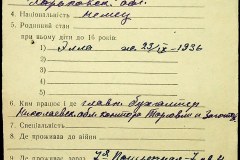 Харьковск. обл.
4. Національність немец
5. Родинний стан
при ньому діти до 16 років:
1) Элла по 23/IX-1936
2)
3)
6. Ким працює і де главн. бухгалтер
Николаевск. обл. контора Торговли
7. Спеціальність
8. Де проживав до війни
9. Де проживає зараз